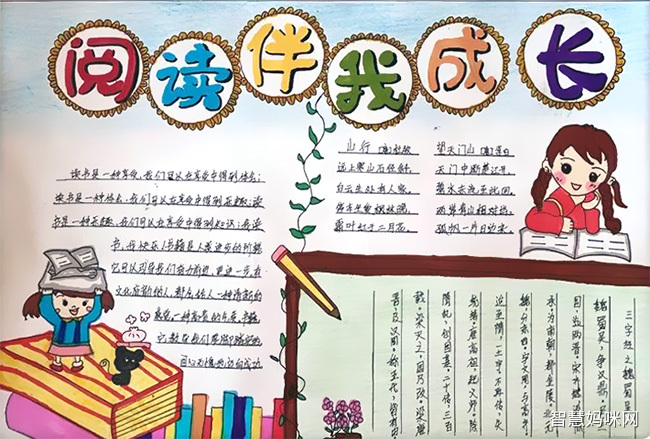 阅读伴我成长
读书是一种享受,我们可以在享受中得到休息;
读书是一种休息,我们可以在享受中得到乐趣;读
书是一种乐趣,我们可以在享受中得到知识;我读
书,我快乐!书籍是人类进步的阶梯
它可以引导我们奋力前进,更进一步,有
文化底蕴的人,都会给人一种清新的
感觉,一种高贵的气质,书籍
它教在我们要脚踏实地
迈向成功
山行 [唐]杜牧
远上寒山石径斜,
白云生处有人家。
停车坐爱枫林晚,
霜叶红于二月花。
望天门山 [唐]李白
天门中断楚江开,
碧水东流至此回。
两岸青山相对出,
孤帆一片日边来。
三字经之魏蜀吴
魏蜀吴,争汉鼎,
国,迄两晋。宋齐继,
承,为南朝,都金陵,北元
魏,分东西,宇文周,与高齐,
迨至隋,一土宇,不再传,失
统绪,唐高祖,起义师,除
隋乱,创国基,二十传,三百
载,梁灭之,国乃改,梁唐
晋,及汉周,称五代,皆有由
智慧妈咪网